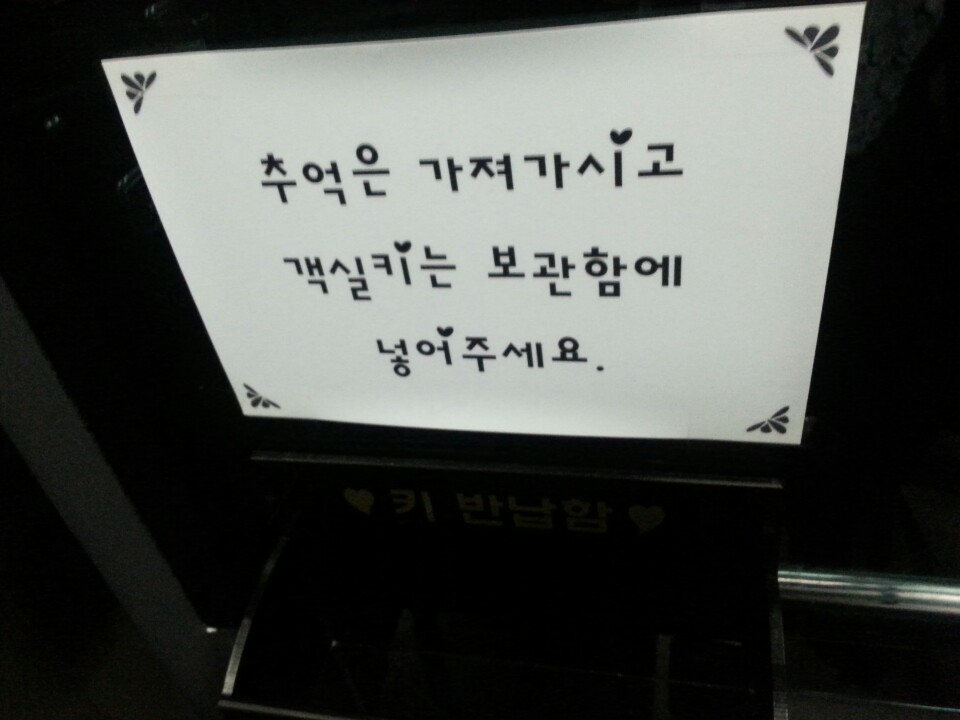 추억은 가져가시고
객실키는 보관함에
넣어주세요.
♥키 반납함♥